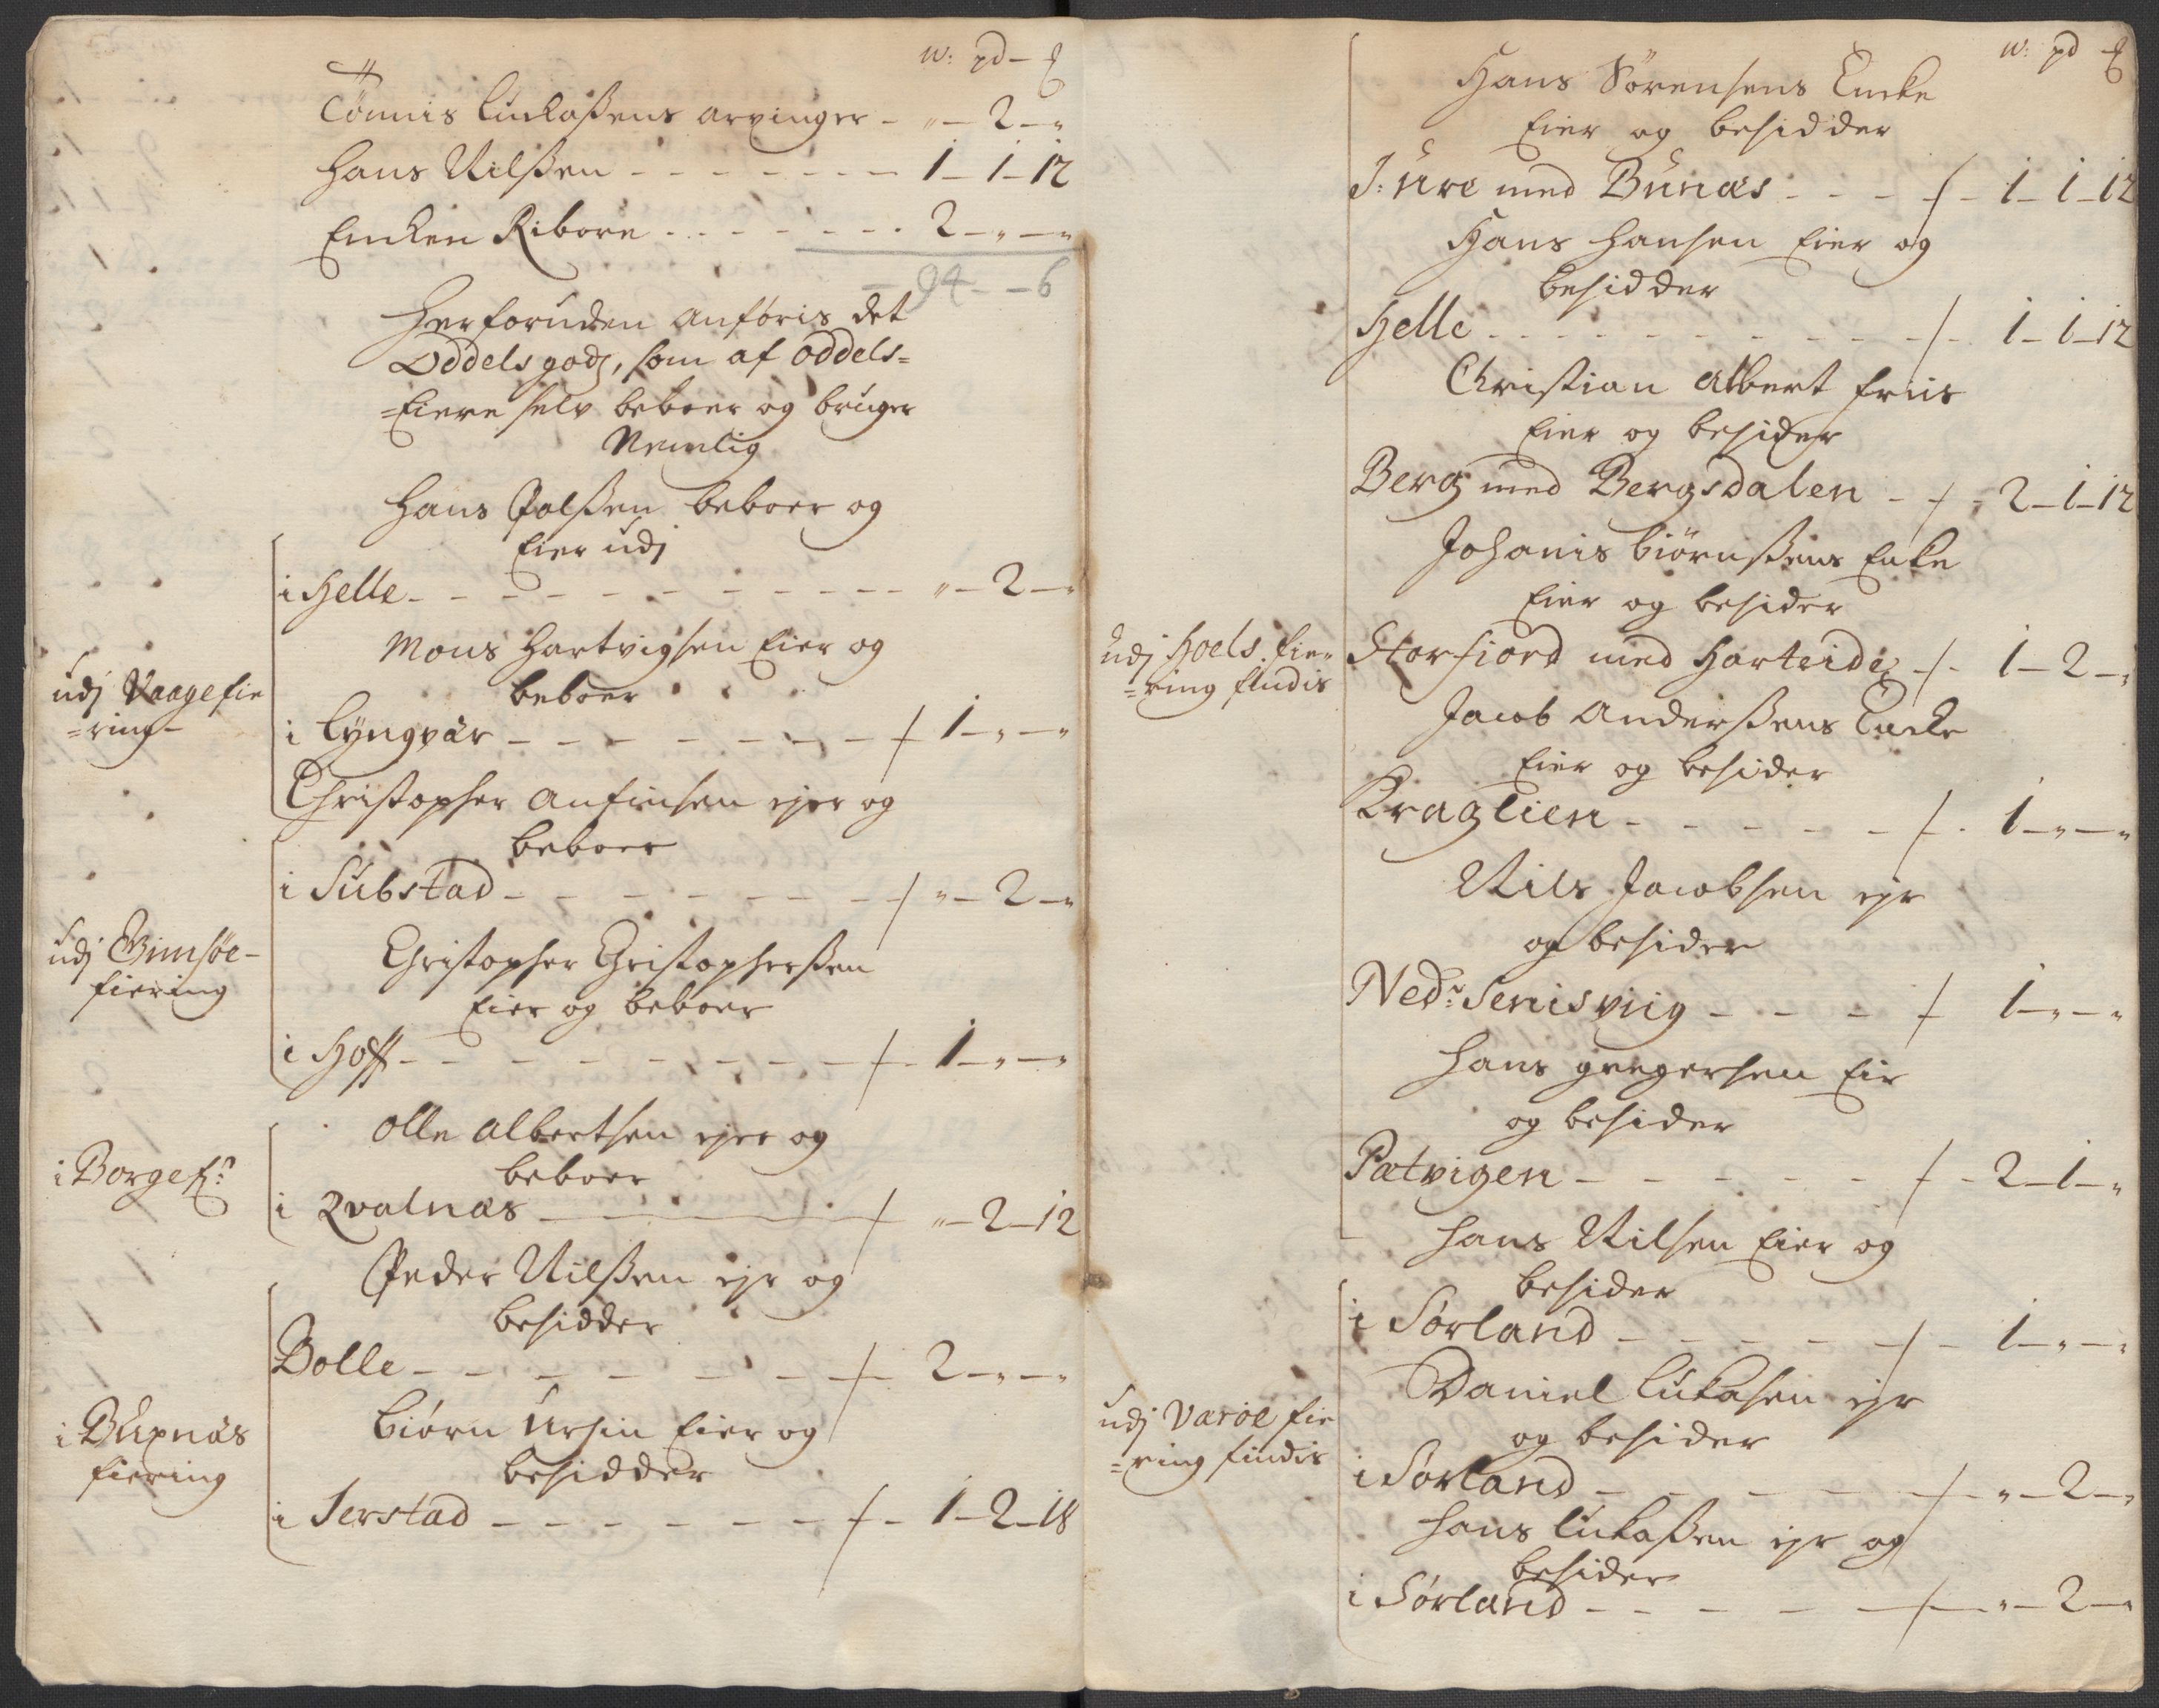 w: pd - ℔
Tönnis Luckaßens arvinger - " - 2 - "
Hans Nilßen - - - - - - - 1 - 1 - 12
Encken Ribore - - - - - - 2 - " - "
94 - - 6
Herforuden anføris det
Oddels godz, som af oddels=
=Eiere selv beboer og bruger
Nemlig
Hans Polßen beboer og
Eier udj
i Helle - - - - - - - - - - " - 2 - "
Mons Hartvigsen Eier og
beboer
udj Vaage fie
=ring -
i Lyngvær - - - - - - - 1 - " - "
Christopher Anfinsen ejer og
beboer
i Substad - - - - - - - " - 2 - "
udj Gimsøe -
fiering
Christopher Christopherßen
Eier og beboer
i Hoff - - - - - - - - 1 - " - "
Olle Albertsen ejer og
beboer
i Borge f:
i Qvalnæs - - - " - 2 - 12
Peder Nilßen ejr og
besidder
Bolle - - - - - - - 2 - " - "
i Buxnæs
fiering
Biørn Ursin Eier og
besidder
i Jerstad - - - - - - - 1 - 2 - 18
w: pd ℔
Hans Sörensens Encke
Eier og besidder
J: Ure med Bunæs - - - 1 - 1 - 12
Hans Hansen Eier og
besidder
Helle - - - - - - - - - 1 - 1 - 12
Christian Albert Friis
Eier og besider
Berg med Bergsdalen - - 2 - 1 - 12
Johanis Biörnßens Enke
Eier og besider
udj Hoels fie=
=ring findis
Storfiord med Harteide - 1 - 2 - "
Jacob Anderßens Encke
Eier og besider
Kraglien - - - - - - 1 - " - "
Nils Jacobsen ejr
og besider
Nedr: Senisviig - - - - 1 - " - "
Hans gregersen Eir
og besider
Pætvigen - - - - - - 2 - 1 - "
Hans Nilsen Eier og
besider
i Sørland - - - - - - 1 - " - "
Daniel Lukasen ejr
og besider
udj Værøe fie
=ring findis
i Sørland - - - - - " - 2 - "
Hans Lukaßen ejr og
besider
i Sørland - - - - - " - 2 - "